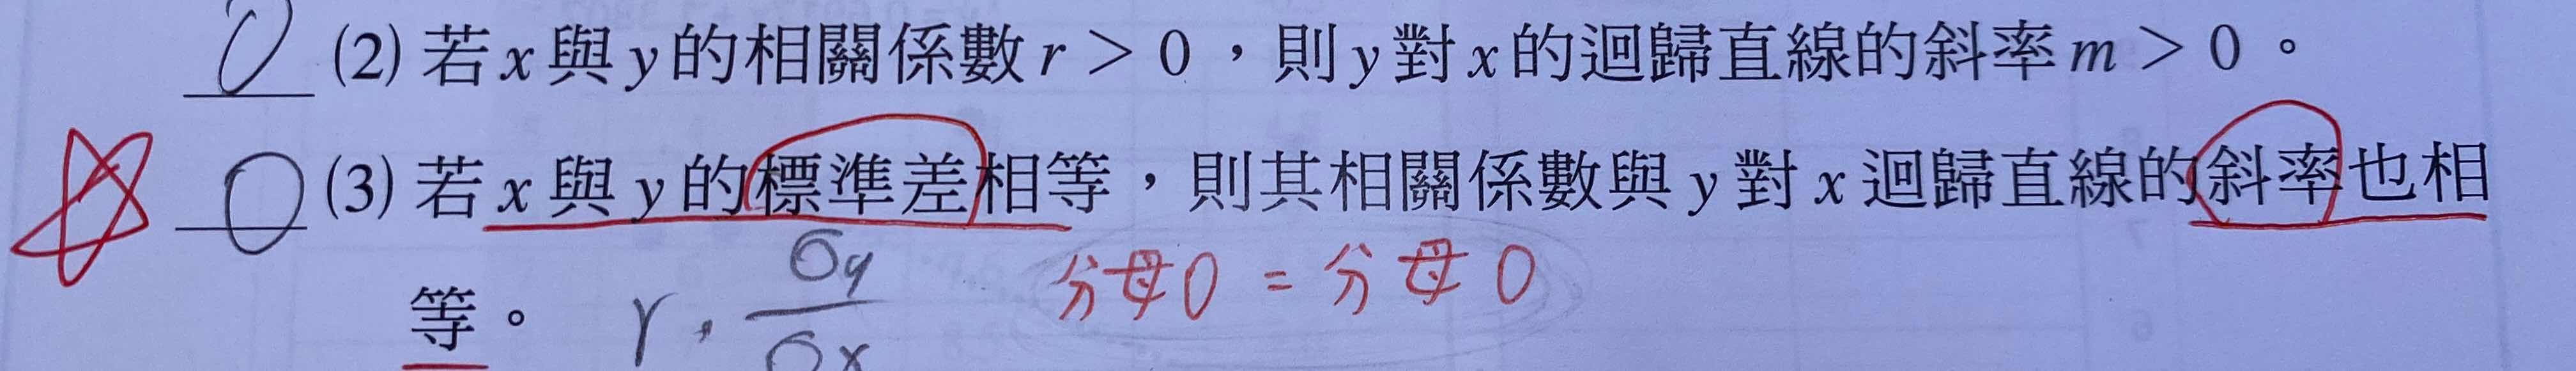 O (2) 若 x 與 y 的相關係數 r > 0，則 y 對 x 的迴歸直線的斜率 m > 0。
O (3) 若 x 與 y 的標準差相等，則其相關係數與 y 對 x 迴歸直線的斜率也相
等。 r · σy/σx 分母0 = 分母0